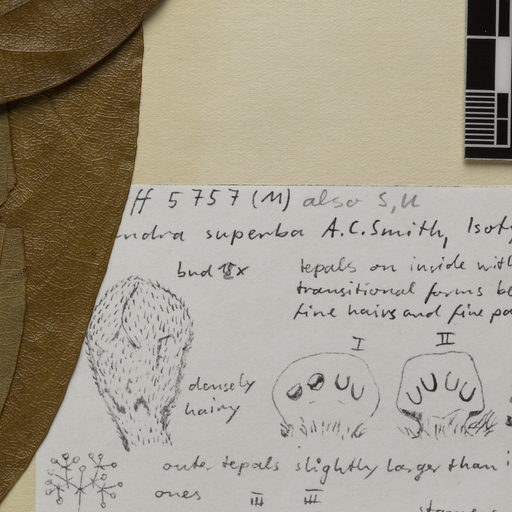 ff 5757 (M) also S, U
ndra superba A.C. Smith, Isoty
bud
tepals on inside with
transitional forms be
fine hairs and fine pa
densely
hairy
I
II
oute. tepals slightly larger than i
ones III III